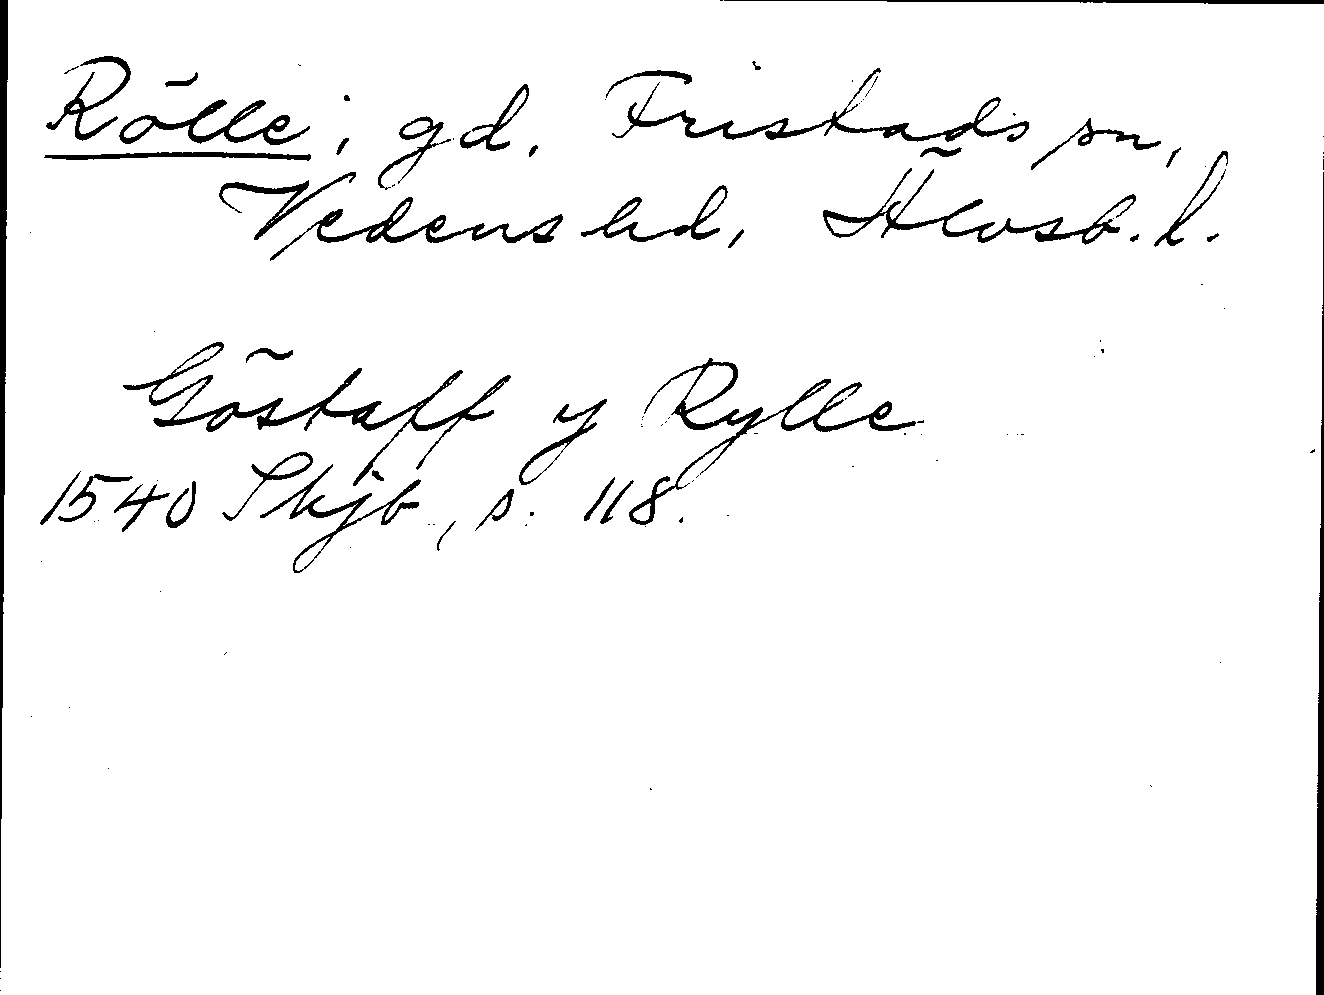 Rölle, gd. Fristads sn,
Vedens hd, Älvsb. l.
Göstaff y Rylle
1540 Skjb, s. 118.